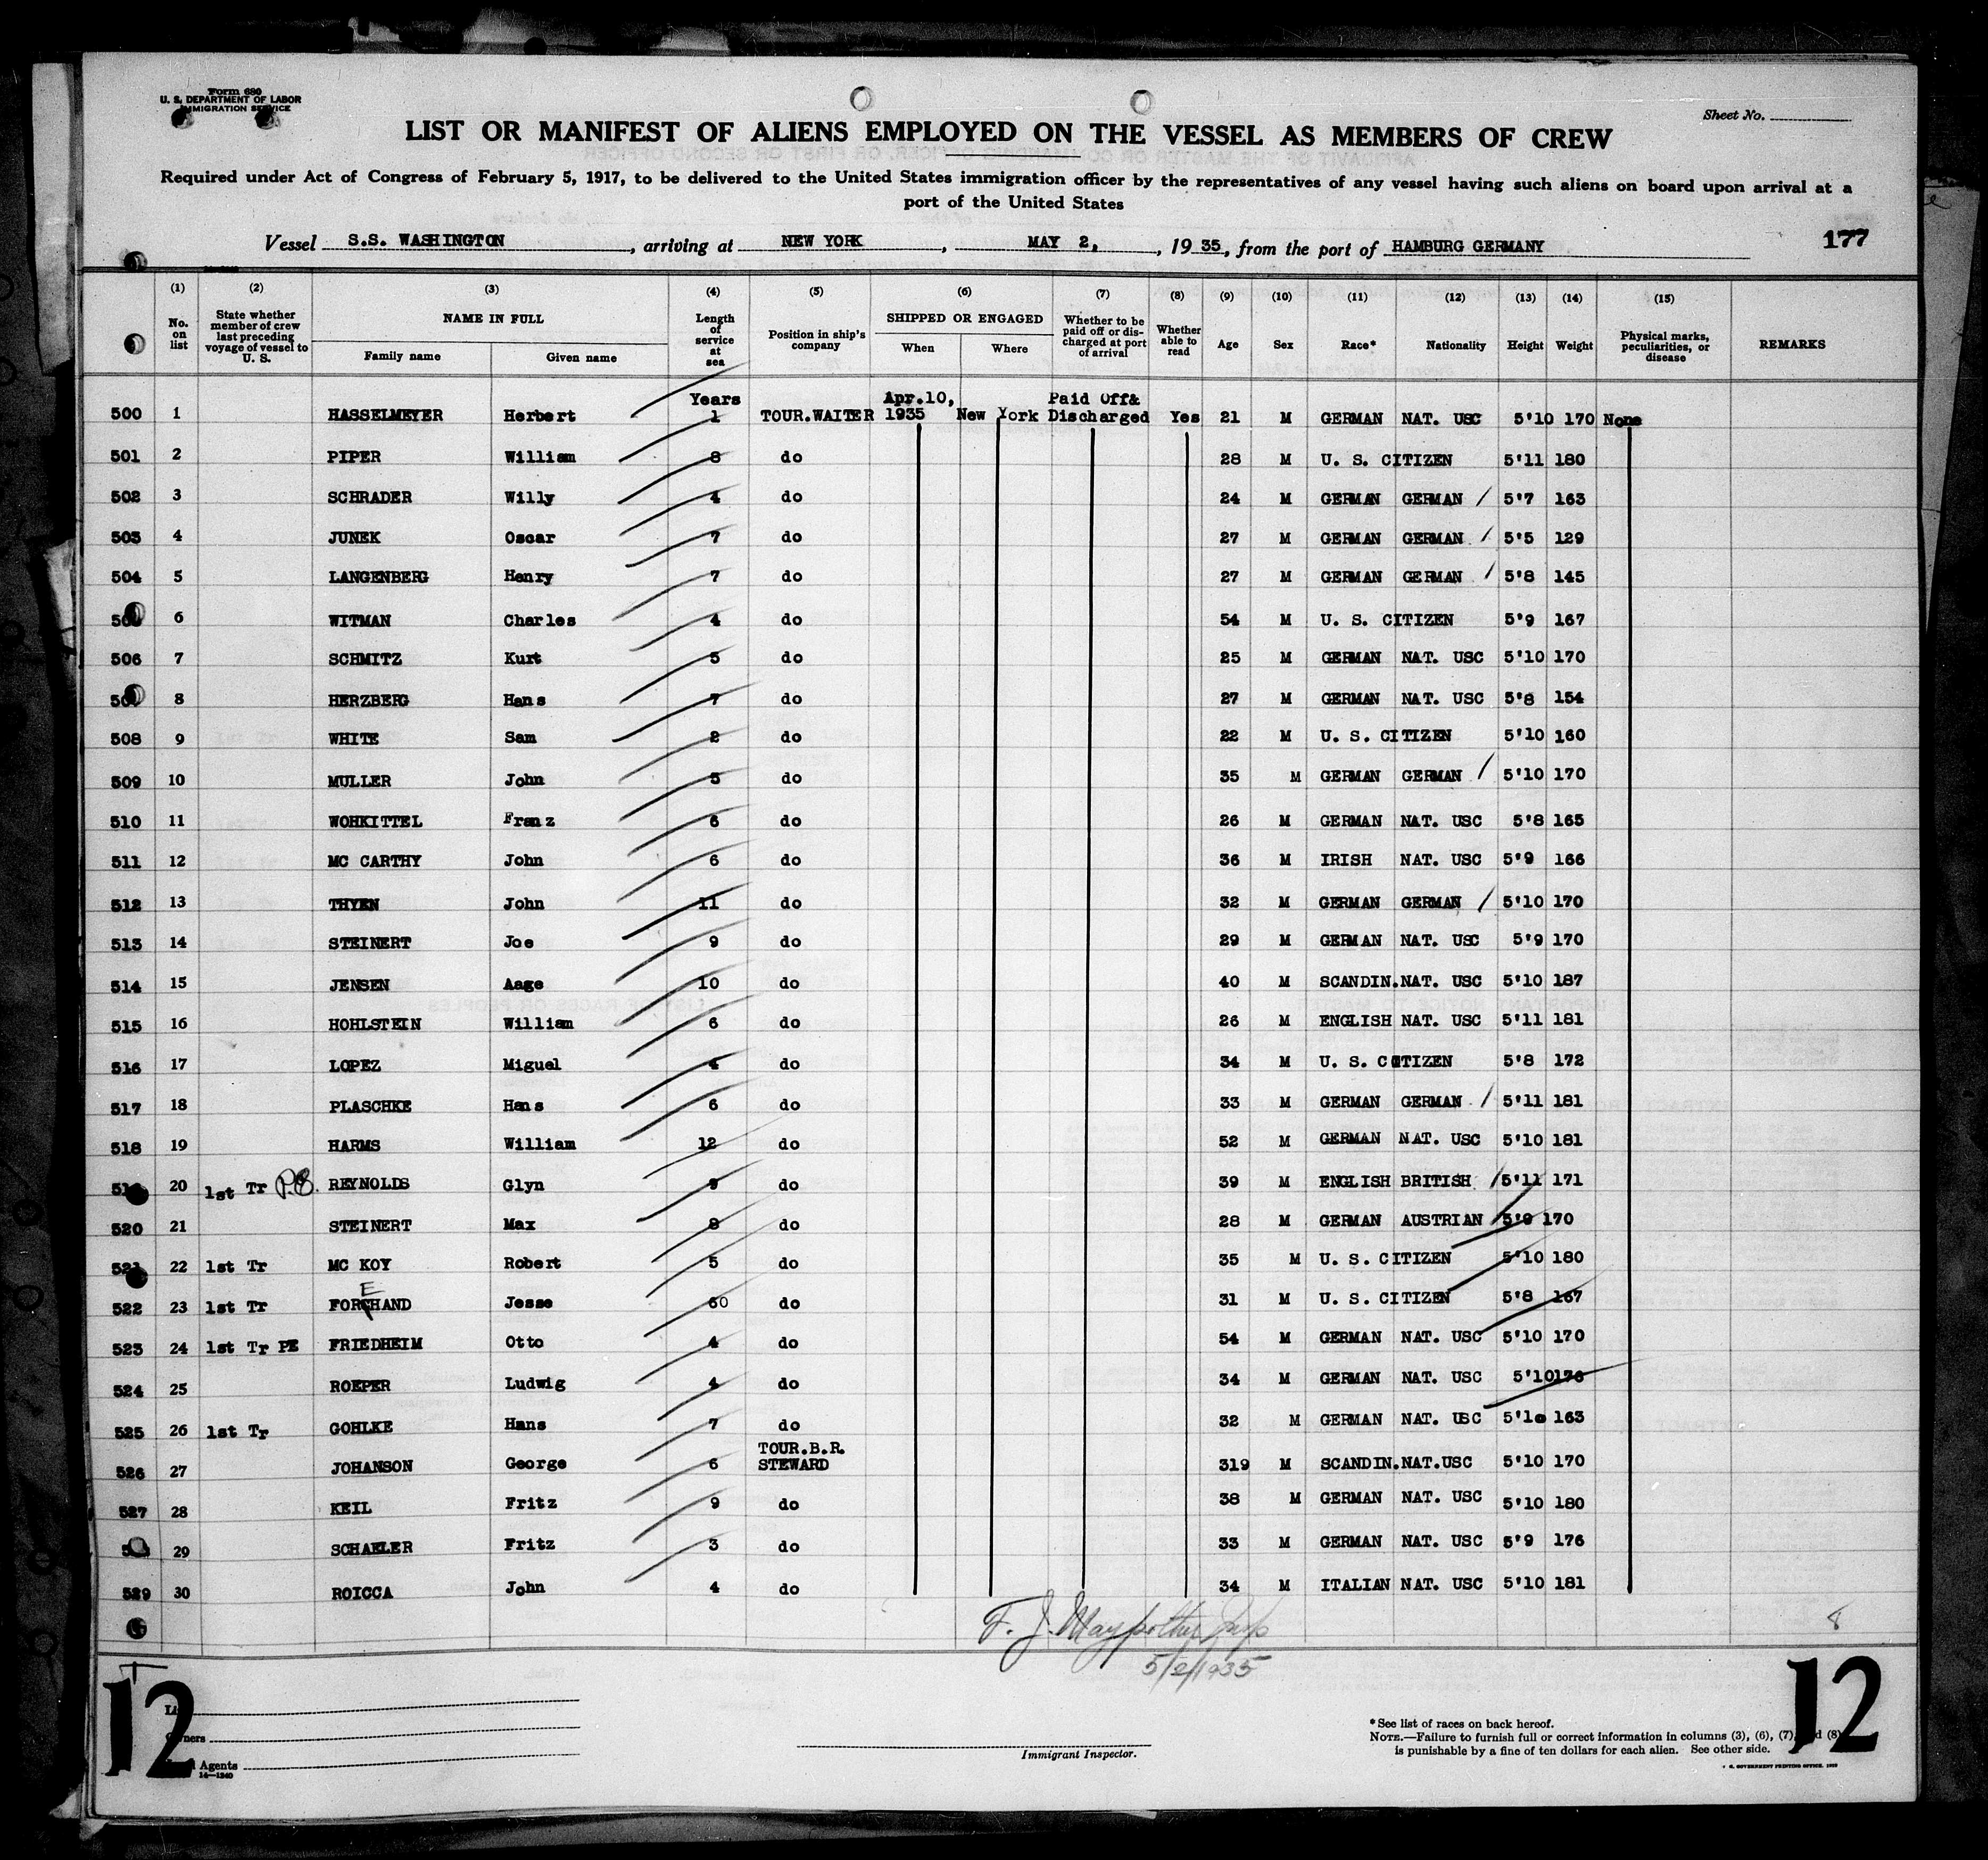 Form 680
U. S. DEPARTMENT OF LABOR
IMMIGRATION SERVICE
Sheet No.
LIST OR MANIFEST OF ALIENS EMPLOYED ON THE VESSEL AS MEMBERS OF CREW
Required under Act of Congress of February 5, 1917, to be delivered to the United States immigration officer by the representatives of any vessel having such aliens on board upon arrival at a
port of the United States
Vessel S.S. WASHINGTON, arriving at NEW YORK, MAY 2, 1935, from the port of HAMBURG GERMANY 177
(1) (2) (3) (4) (5) (6) (7) (8) (9) (10) (11) (12) (13) (14) (15)
No. on list
State whether member of crew last preceding voyage of vessel to U. S.
NAME IN FULL
Family name Given name
Length of service at sea
Position in ship's company
SHIPPED OR ENGAGED
When Where
Whether to be paid off or discharged at port of arrival
Whether able to read
Age Sex Race* Nationality Height Weight
Physical marks, peculiarities, or disease
REMARKS
Years Apr.10, Paid Off&
500 1 HASSELMEYER Herbert 1 TOUR.WAITER 1935 New York Discharged Yes 21 M GERMAN NAT. USC 5'10 170 None
501 2 PIPER William 8 do 28 M U. S. CITIZEN 5'11 180
502 3 SCHRADER Willy 4 do 24 M GERMAN GERMAN / 5'7 163
503 4 JUNEK Oscar 7 do 27 M GERMAN GERMAN / 5'5 129
504 5 LANGENBERG Henry 7 do 27 M GERMAN GERMAN / 5'8 145
6 WITMAN Charles 4 do 54 M U. S. CITIZEN 5'9 167
506 7 SCHMITZ Kurt 5 do 25 M GERMAN NAT. USC 5'10 170
8 HERZBERG Hans 7 do 27 M GERMAN NAT. USC 5'8 154
508 9 WHITE Sam 2 do 22 M U. S. CITIZEN 5'10 160
509 10 MULLER John 5 do 35 M GERMAN GERMAN / 5'10 170
510 11 WOHKITTEL Franz 6 do 26 M GERMAN NAT. USC 5'8 165
511 12 MC CARTHY John 6 do 36 M IRISH NAT. USC 5'9 166
512 13 THYEN John 11 do 32 M GERMAN GERMAN / 5'10 170
513 14 STEINERT Joe 9 do 29 M GERMAN NAT. USC 5'9 170
514 15 JENSEN Aage 10 do 40 M SCANDIN. NAT. USC 5'10 187
515 16 HOHLSTEIN William 6 do 26 M ENGLISH NAT. USC 5'11 181
516 17 LOPEZ Miguel 4 do 34 M U. S. CITIZEN 5'8 172
517 18 PLASCHKE Hans 6 do 33 M GERMAN GERMAN / 5'11 181
518 19 HARMS William 12 do 52 M GERMAN NAT. USC 5'10 181
20 1st Tr P.E. REYNOLDS Glyn 9 do 39 M ENGLISH BRITISH / 5'11 171
520 21 STEINERT Max 8 do 28 M GERMAN AUSTRIAN / 5'9 170
521 22 1st Tr MC KOY Robert 5 do 35 M U. S. CITIZEN 5'10 180
E
522 23 1st Tr FORCHAND Jesse 60 do 31 M U. S. CITIZEN 5'8 167
523 24 1st Tr PE FRIEDHEIM Otto 4 do 54 M GERMAN NAT. USC 5'10 170
524 25 ROEPER Ludwig 4 do 34 M GERMAN NAT. USC 5'10 176
525 26 1st Tr GOHLKE Hans 7 do 32 M GERMAN NAT. USC 5'10 163
TOUR.B.R.
526 27 JOHANSON George 6 STEWARD 319 M SCANDIN. NAT.USC 5'10 170
527 28 KEIL Fritz 9 do 38 M GERMAN NAT. USC 5'10 180
29 SCHAELER Fritz 3 do 33 M GERMAN NAT. USC 5'9 176
529 30 ROICCA John 4 do 34 M ITALIAN NAT. USC 5'10 181
F. J. Maypother
5/2/1935
8
12 12
Owners
Agents
14—1240
Immigrant Inspector.
* See list of races on back hereof.
NOTE.—Failure to furnish full or correct information in columns (3), (6), (7), and (8)
is punishable by a fine of ten dollars for each alien. See other side.
U. S. GOVERNMENT PRINTING OFFICE